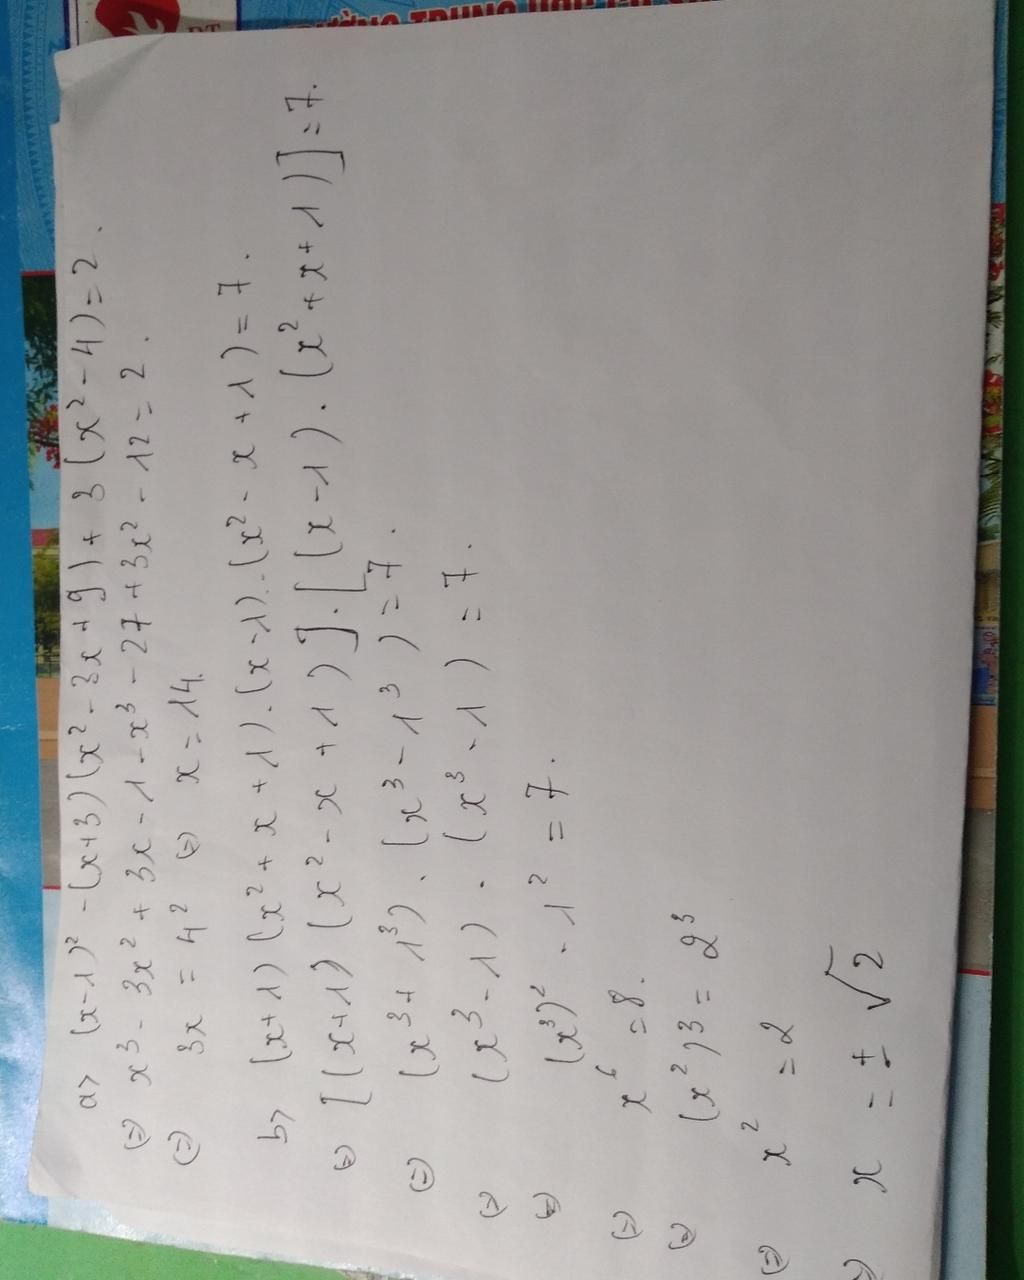 a> (x-1)² - (x+3)(x² - 3x + 9) + 3(x² - 4) = 2.
(=) x3 - 3x² + 3x - 1 - x³ - 27 + 3x² - 12 = 2.
(=) 3x = 4² (=) x = 14.
b> (x+1)(x² + x + 1).(x-1).(x² - x + 1) = 7.
(=) [(x+1)(x² - x + 1)].[(x-1).(x² + x + 1)] = 7.
(=) (x³ + 1³).(x³ - 1³) = 7.
(=) (x³ - 1).(x³ - 1) = 7.
(=) (x³)² - 1² = 7.
(=) x⁶ = 8.
(=) (x²)3 = 2³
(=) x² = 2
(=) x = ± √2